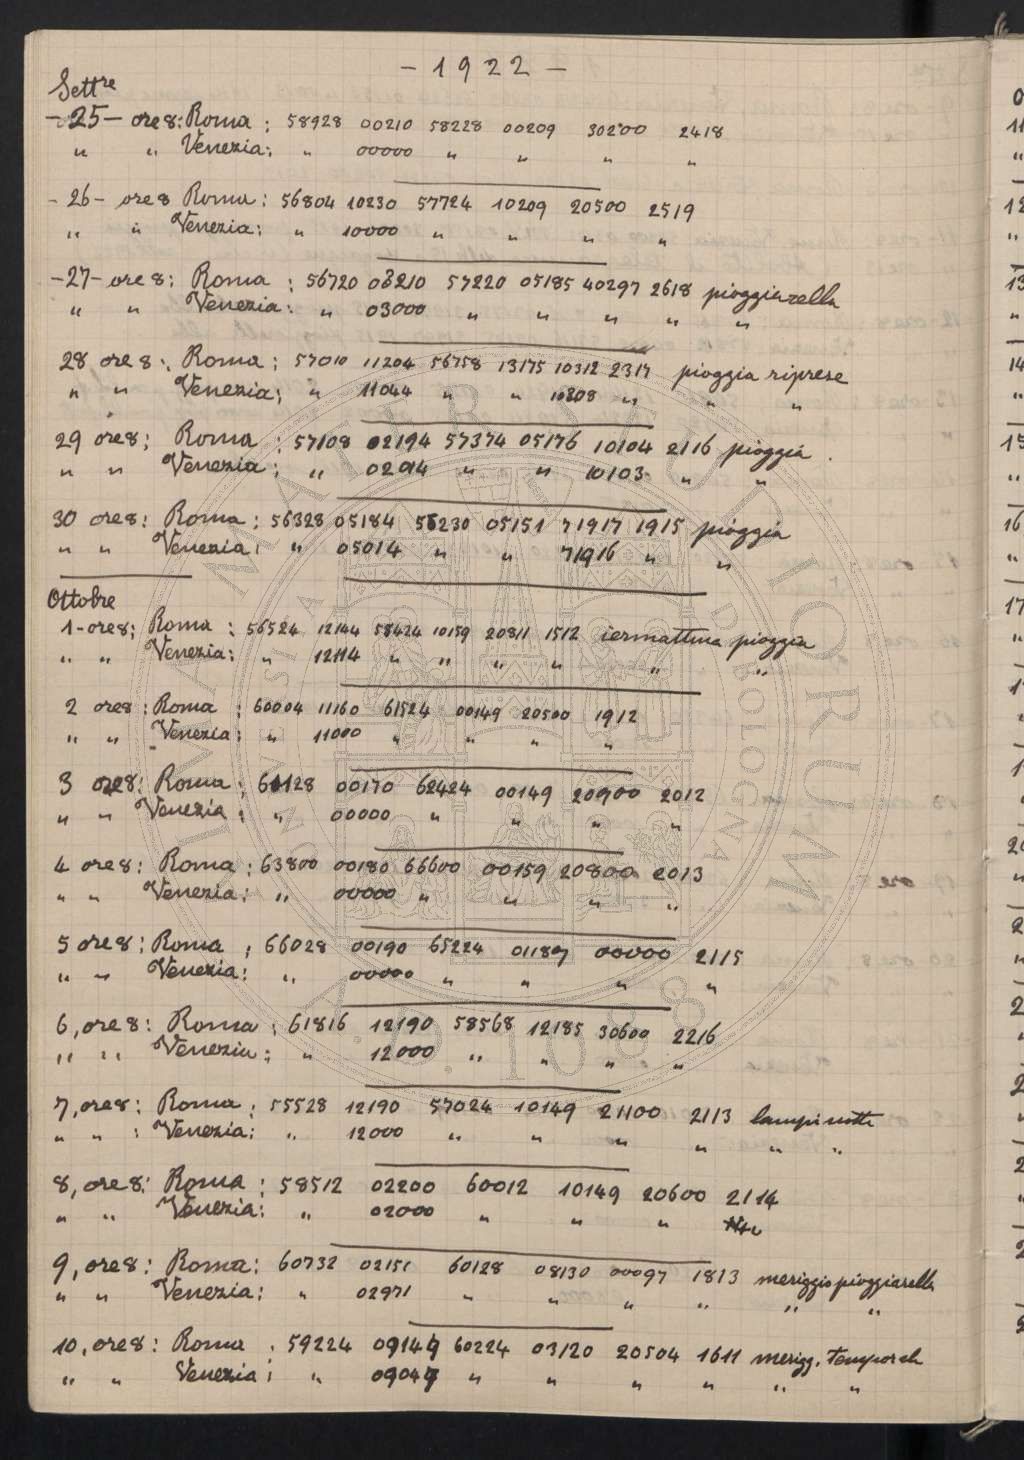 - 1922 -
Settre
- 25 - ore 8: Roma : 58928 00210 58228 00209 30200 2418
" " Venezia: " 00000 " " " "
- 26 - ore 8 Roma : 56804 10230 57724 10209 20500 2519
" " Venezia: " 10000 " " " "
- 27 - ore 8: Roma : 56720 03210 57220 05185 40297 2618 pioggiarella
" " Venezia: " 03000 " " " " "
28 ore 8: Roma : 57010 11204 56758 13175 10312 2317 pioggia riprese
" " Venezia; " 11044 " " 10808 " " "
29 ore 8: Roma : 57108 02194 57374 05176 10104 2116 pioggia
" " Venezia: " 02014 " " 10103 " "
30 ore 8: Roma : 56328 05184 56230 05151 71917 1915 pioggia
" " Venezia: " 05014 " " 71916 " "
Ottobre
1 - ore 8: Roma : 56524 12144 58424 10159 20811 1512 iermattina pioggia
" " Venezia: " 12114 " " " " " "
2 ore 8 : Roma : 60004 11160 61524 00149 20500 1912
" " Venezia: " 11000 " " " "
3 ore 8: Roma : 60128 00170 62424 00149 20900 2012
" " Venezia : " 00000 " " " "
4 ore 8: Roma : 63800 00180 66600 00159 20800 2013
" " Venezia: " 00000 " " " "
5 ore 8: Roma : 66028 00190 65224 01189 00000 2115
" " Venezia: " 00000 " " " "
6, ore 8: Roma : 61816 12190 58568 12185 30600 2216
" " Venezia: " 12000 " " " "
7, ore 8: Roma : 55528 12190 57024 10149 21100 2113 lampi notte
" " : Venezia: " 12000 " " " " " "
8, ore 8: Roma : 58512 02200 60012 10149 20600 2114
" " Venezia: " 02000 " " "
9, ore 8: Roma : 60732 02151 60128 08130 00097 1813 meriggio pioggiarella
" " Venezia: " 02971 " " " " " "
10, ore 8: Roma : 59224 09149 60224 03120 20504 1611 merigg. temporale
" " Venezia: " 09049 " " " " " "